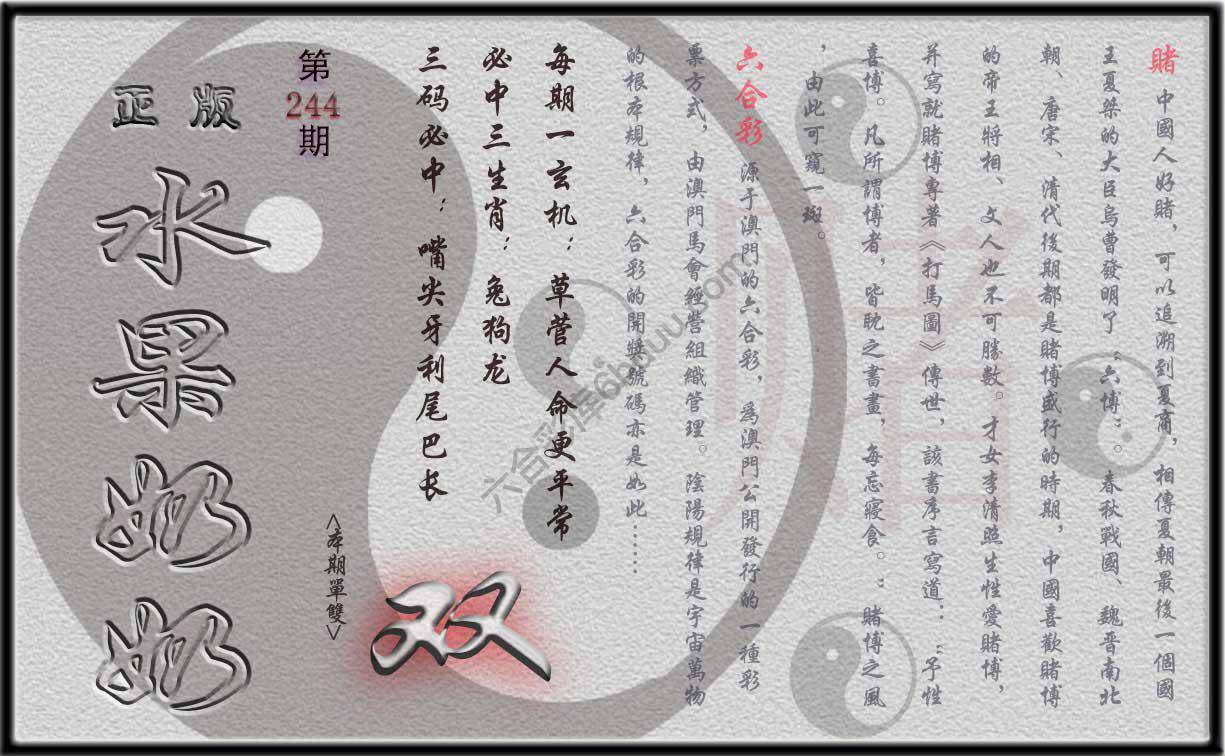 賭 中國人好賭，可以追溯到夏商，相傳夏朝最後一個國
王夏桀的大臣烏曹發明了“六博”。春秋戰國、魏晋南北
朝、唐宋、清代後期都是賭博盛行的時期，中國喜歡賭博
的帝王將相、文人也不可勝數。才女李清照生性愛賭博，
并寫就賭博專著《打馬圖》傳世，該書序言寫道：“予性
喜博。凡所謂博者，皆耽之書畫，每忘寢食。”賭博之風
，由此可窺一斑。
六合彩 源于澳門的六合彩，爲澳門公開發行的一種彩
票方式，由澳門馬會經營組織管理。陰陽規律是宇宙萬物
的根本規律，六合彩的開獎號碼亦是如此……
賭
每期一玄机：草菅人命更平常
必中三生肖：兔狗龙
三码必中：嘴尖牙利尾巴长
双
<本期單雙>
第
244
期
正版
水果奶奶
六合彩库6hduu.com